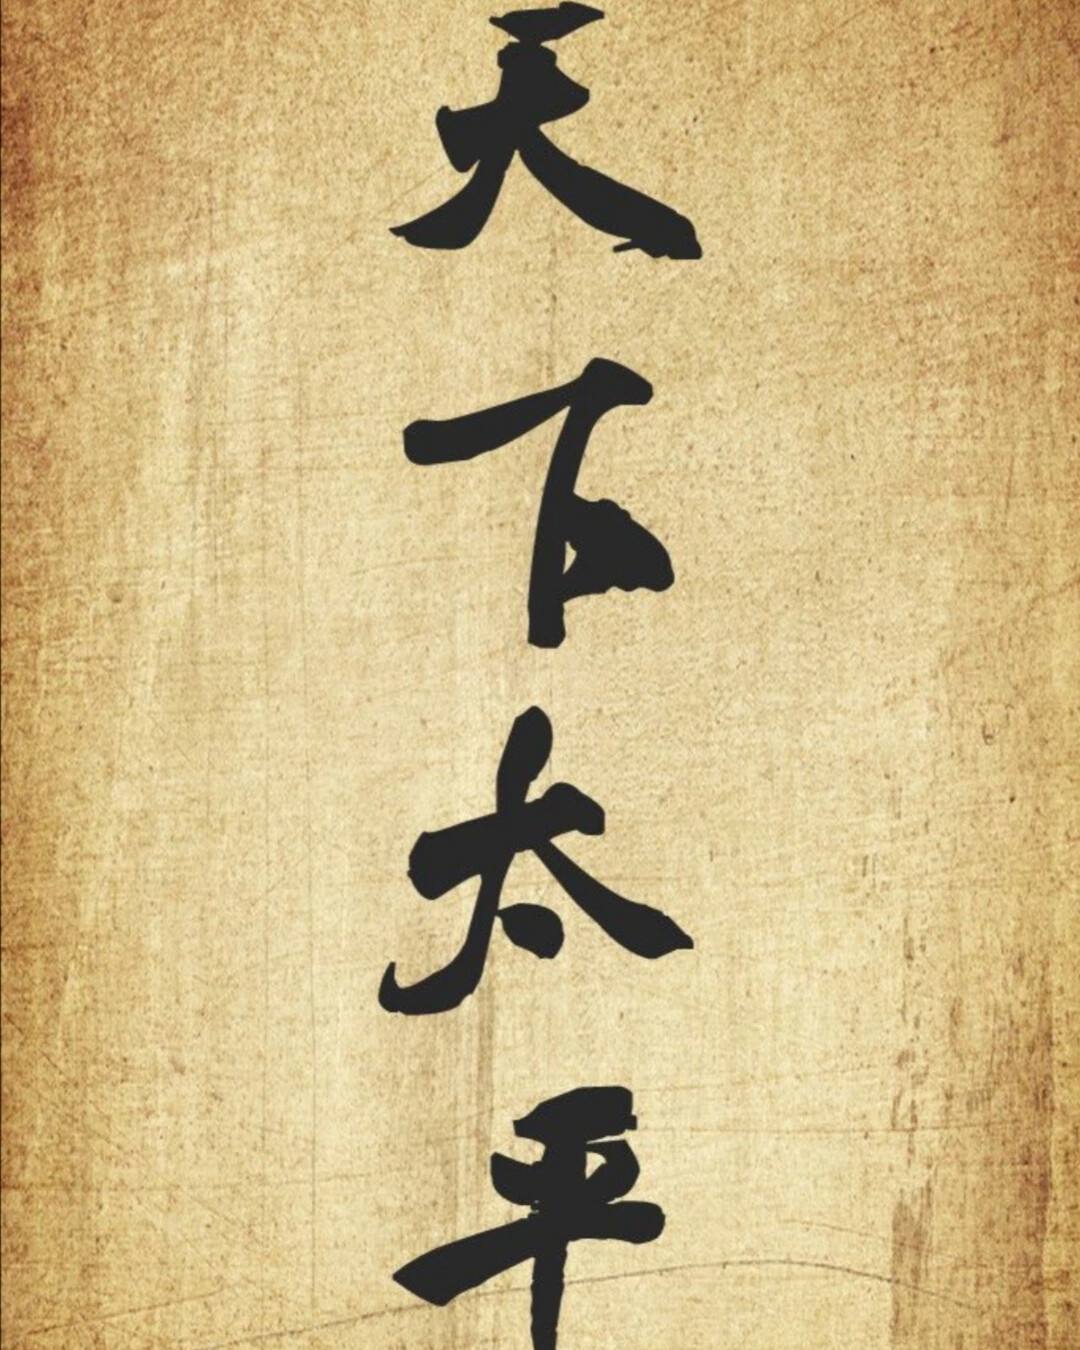 天下太平